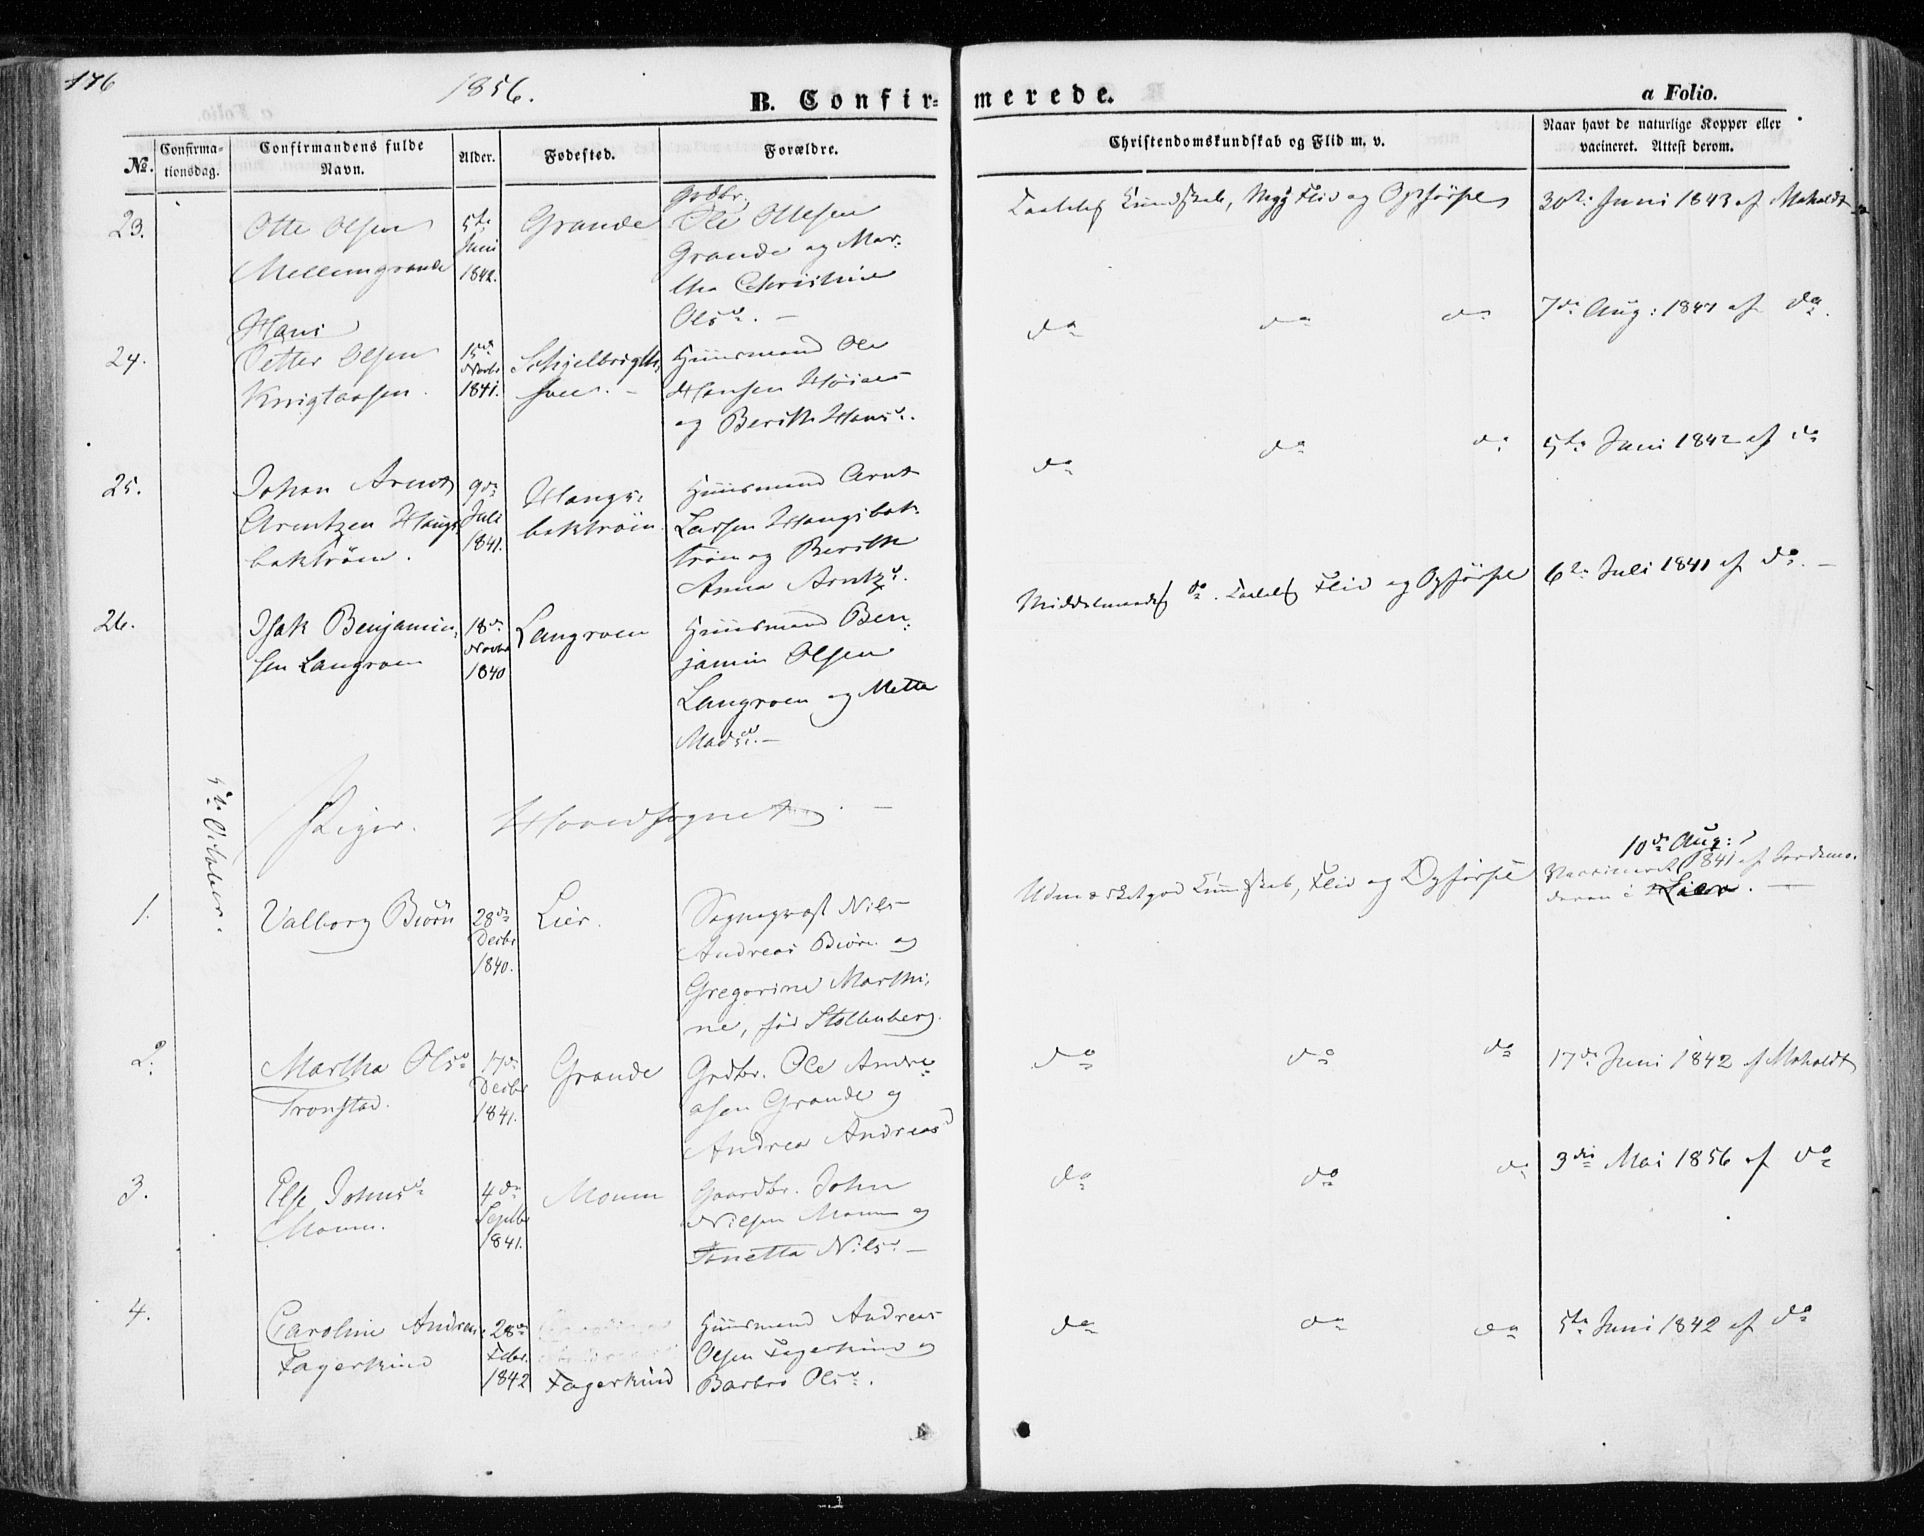 176
1856.
B. Confir-
merede.
a Folio.
No.
Confirma-
tionsdag.
Confirmandens fulde
Navn.
Alder.
Fødested.
Forældre.
Christendomskundskab og Flid m. v.
Naar havt de naturlige Kopper eller
vacineret. Attest derom.
23.
Otte Olsen
Mellemgrande
5te
Juni
1842.
Grande
Grdbr.
Ole Ottesen
Grande og Mar-
tha Christine
Olsd. —
Kundskab, Flid og Opførsel
30te Juni 1843 af Moholdt
24.
Hans
Petter Olsen
15de
Novbr
1841.
Huusmand Ole
Hansen
og Berith Hansd.
do do do
7de Aug: 1841 af do.
25.
Johan Arnt
Arntzen Haugs-
baktrøen.
9de
Juli
1841.
Haugs-
baktrøen
Huusmand Arnt
Larsen Haugsbak-
trøen og Berith
Anna Arntzd.
do do do
5te Juni 1842 af do
26.
Isak Benjamin-
sen Langroen
18de
Novbr
1840
Langroen
Huusmand Ben-
jamin Olsen
Langroen og Metta
Madsd. —
Middelmaadig do. Flid og Opførsel
6te Juli 1841 af do. —
5te October.
Piger. Hovedsognet. —
1.
Valborg Biørn
28de
Decbr
1840.
Lier.
Sogneprest Nils
Andreas Biørn og
Gregorine Marthi-
ne, fød Stoltenberg.
Udmærket god Kundskab, Flid og Opførsel
10de Aug:
Vaccineret 1841 af Jordemo-
deren i Lier. —
2.
Martha Olsd
Tronstad.
17de
Decbr
1841.
Grande
Grdbr. Ole Andre-
asen Grande og
Andrea Andreasd
do do do
17de Juni 1842 af Moholdt
3.
Else Johnsd.
Moum.
4de
Septbr
1841.
Moum
Gaardbr. John
Nilsen Moum og
Anetta Nilsd. —
do do do
3die Mai 1856 af do
4.
Caroline Andreas-
Fagerkind
28de
Febr.
1842
Fagerkind
Huusmand Andreas
Olsen Fagerkind og
Barbro Olsd.
do do do
5te Juni 1842 af do